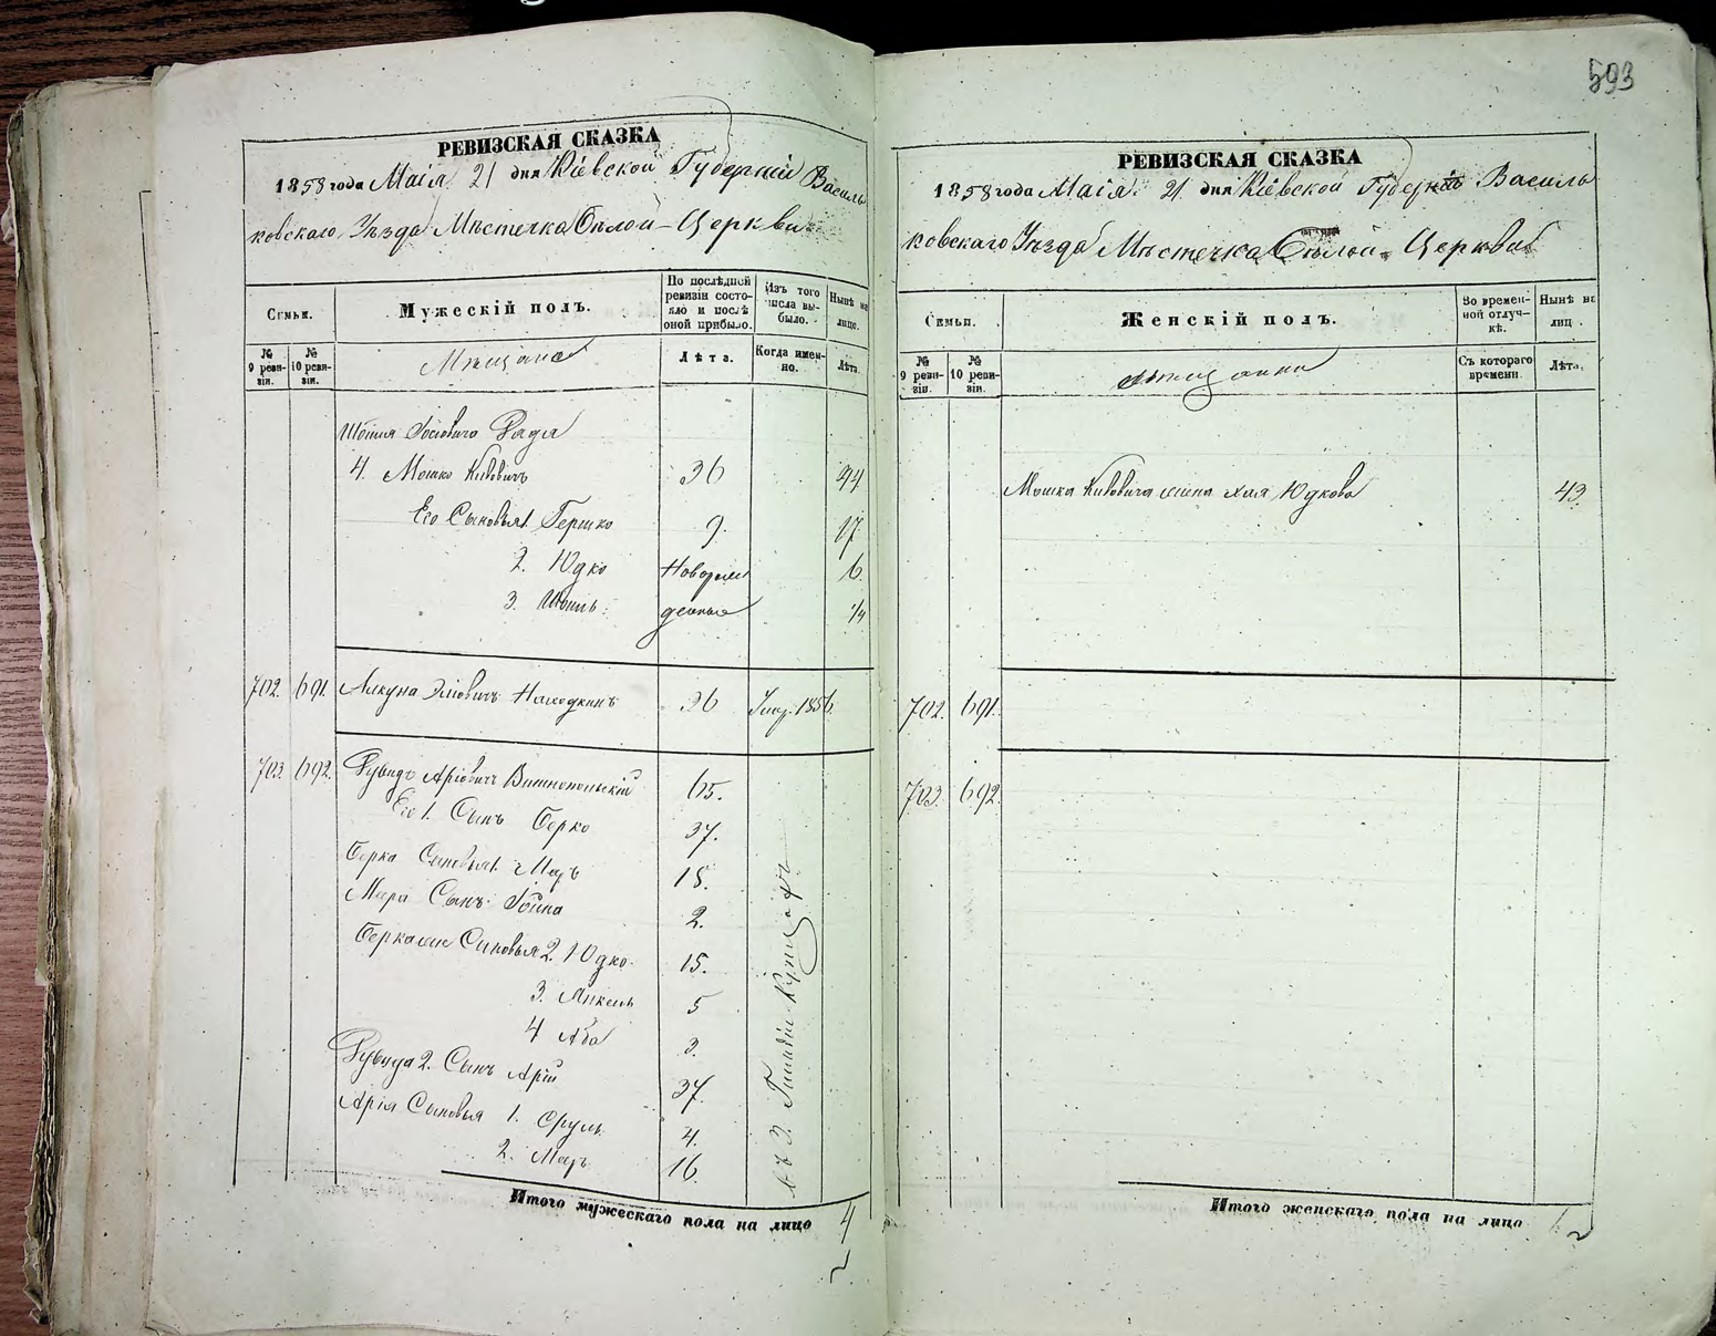 593
РЕВИЗСКАЯ СКАЗКА
1858 года Маія 21 дня Кіевской Губерніи Василь
ковскаго Уѣзда Мѣстечка Бѣлой-Церкви
Семьи.
Мужескій полъ.
По послѣдней ревизіи состояло и послѣ оной прибыло.
Изъ того числа выбыло.
Нынѣ на лицо.
№ 9 ревизіи.
№ 10 ревизіи.
Мѣщане
Лѣта.
Когда именно.
Лѣта.
4. Мошко Кивовичъ 36 44
Его Сыновья 1. Гершко 9. 17
2. Юдко Новорож 6.
3. денные 1/4
702. 691. 36 Умер. 1856.
703. 692. Рувидъ Аріовичъ 65.
Его 1. Сынъ Берко 37.
Берка Сыновья 1. Меэръ 18.
Меэра Сынъ 2.
Берковые Сыновья 2. Юдко 15.
3. 5
4 Аба 3.
Рувида 2. Сынъ Арій 37.
Арія Сыновья 1. Сруль 4.
2. Меэръ 16.
въ 3. Гильдіи Купцахъ
Итого мужескаго пола на лицо 4
РЕВИЗСКАЯ СКАЗКА
1858 года Маія 21 дня Кіевской Губерніи Василь
ковскаго Уѣзда Мѣстечка Бѣлой-Церкви
Семьи.
Женскій полъ.
Во временной отлучкѣ.
Нынѣ на лицо.
№ 9 ревизіи.
№ 10 ревизіи.
Мѣщанки
Съ котораго времени
Лѣта.
Мошка Кивовича жена Хая Юдкова 43.
702. 691.
703. 692.
Итого женскаго пола на лицо 1.